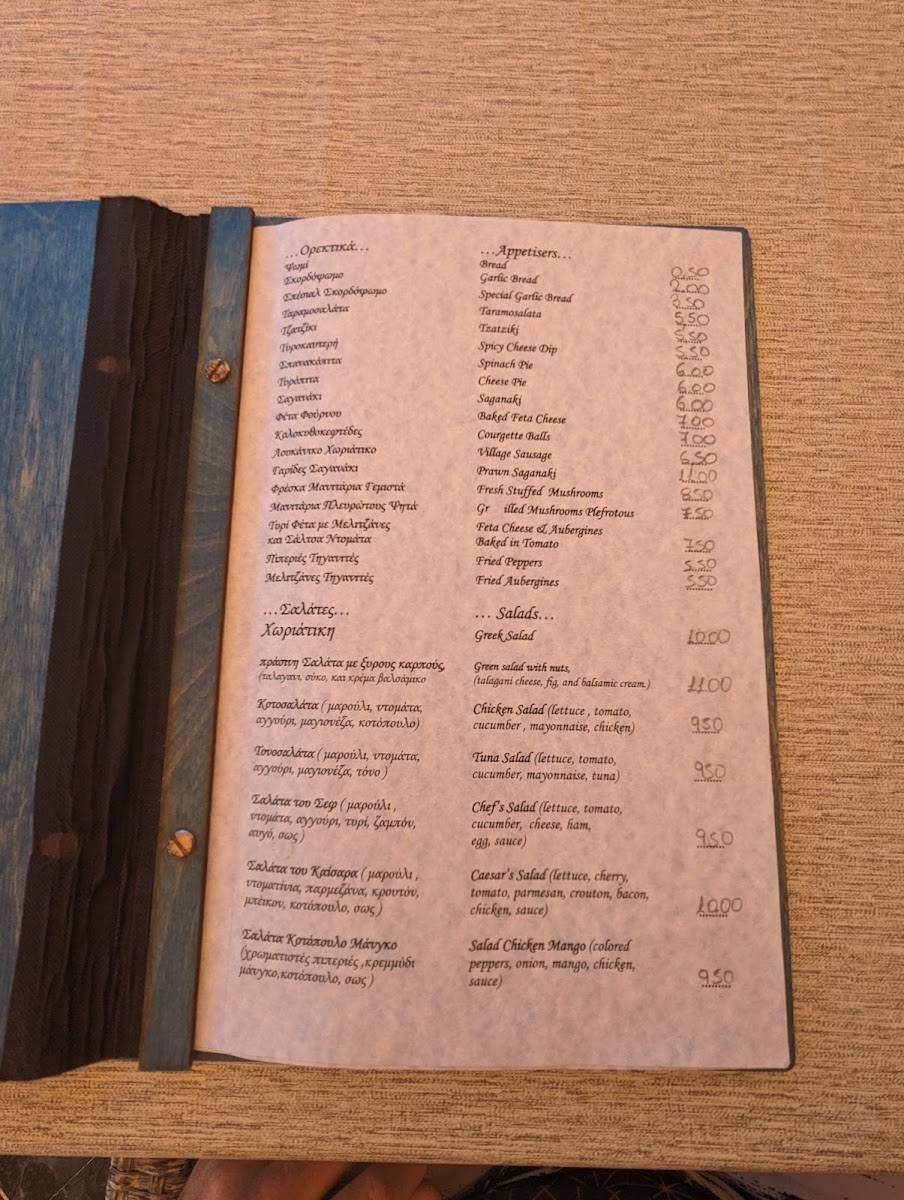 ...Ορεκτικά... ...Appetisers...
Ψωμί Bread 0,50
Σκορδόψωμο Garlic Bread 2.00
Σπέσιαλ Σκορδόψωμο Special Garlic Bread
Ταραμοσαλάτα Taramosalata 5,50
Τζατζίκι Tzatziki
Τυροκαυτερή Spicy Cheese Dip
Σπανακόπιτα Spinach Pie 6.00
Τυρόπιτα Cheese Pie 6.00
Σαγανάκι Saganaki 6.00
Φέτα Φούρνου Baked Feta Cheese 7.00
Καλοκυθοκεφτέδες Courgette Balls 7.00
Λουκάνικο Χωριάτικο Village Sausage 6,50
Γαρίδες Σαγανάκι Prawn Saganaki 11.00
Φρέσκα Μανιτάρια Γεμιστά Fresh Stuffed Mushrooms 8,50
Μανιτάρια Πλευρώτους Ψητά Gr illed Mushrooms Plefrotous 7,50
Τυρί Φέτα με Μελιτζάνες Feta Cheese & Aubergines
και Σάλτσα Ντομάτα Baked in Tomato 7,50
Πιπεριές Τηγανιτές Fried Peppers 5,50
Μελιτζάνες Τηγανιτές Fried Aubergines 5,50
...Σαλάτες... ... Salads...
Χωριάτικη Greek Salad 10.00
πράσινη Σαλάτα με ξυρους καρπούς, Green salad with nuts,
(ταλαγανι, σύκο, και κρέμα βαλσάμικο (talagani cheese, fig, and balsamic cream.) 11.00
Κοτοσαλάτα ( μαρούλι, ντομάτα, Chicken Salad (lettuce , tomato,
αγγούρι, μαγιονέζα, κοτόπουλο) cucumber , mayonnaise, chicken) 9,50
Τονοσαλάτα ( μαρούλι, ντομάτα, Tuna Salad (lettuce, tomato,
αγγούρι, μαγιονέζα, τόνο ) cucumber, mayonnaise, tuna) 9,50
Σαλάτα του Σεφ ( μαρούλι , Chef's Salad (lettuce, tomato,
ντομάτα, αγγούρι, τυρί, ζαμπόν, cucumber, cheese, ham,
αυγό, σως ) egg, sauce) 9,50
Σαλάτα του Καίσαρα ( μαρούλι , Caesar's Salad (lettuce, cherry,
ντοματίνια, παρμεζάνα, κρουτόν, tomato, parmesan, crouton, bacon,
μπέικον, κοτόπουλο, σως ) chicken, sauce) 10.00
Σαλάτα Κοτόπουλο Μάνγκο Salad Chicken Mango (colored
(χρωματιστές πιπεριές ,κρεμμύδι peppers, onion, mango, chicken,
μάνγκο,κοτόπουλο, σως ) sauce) 9,50